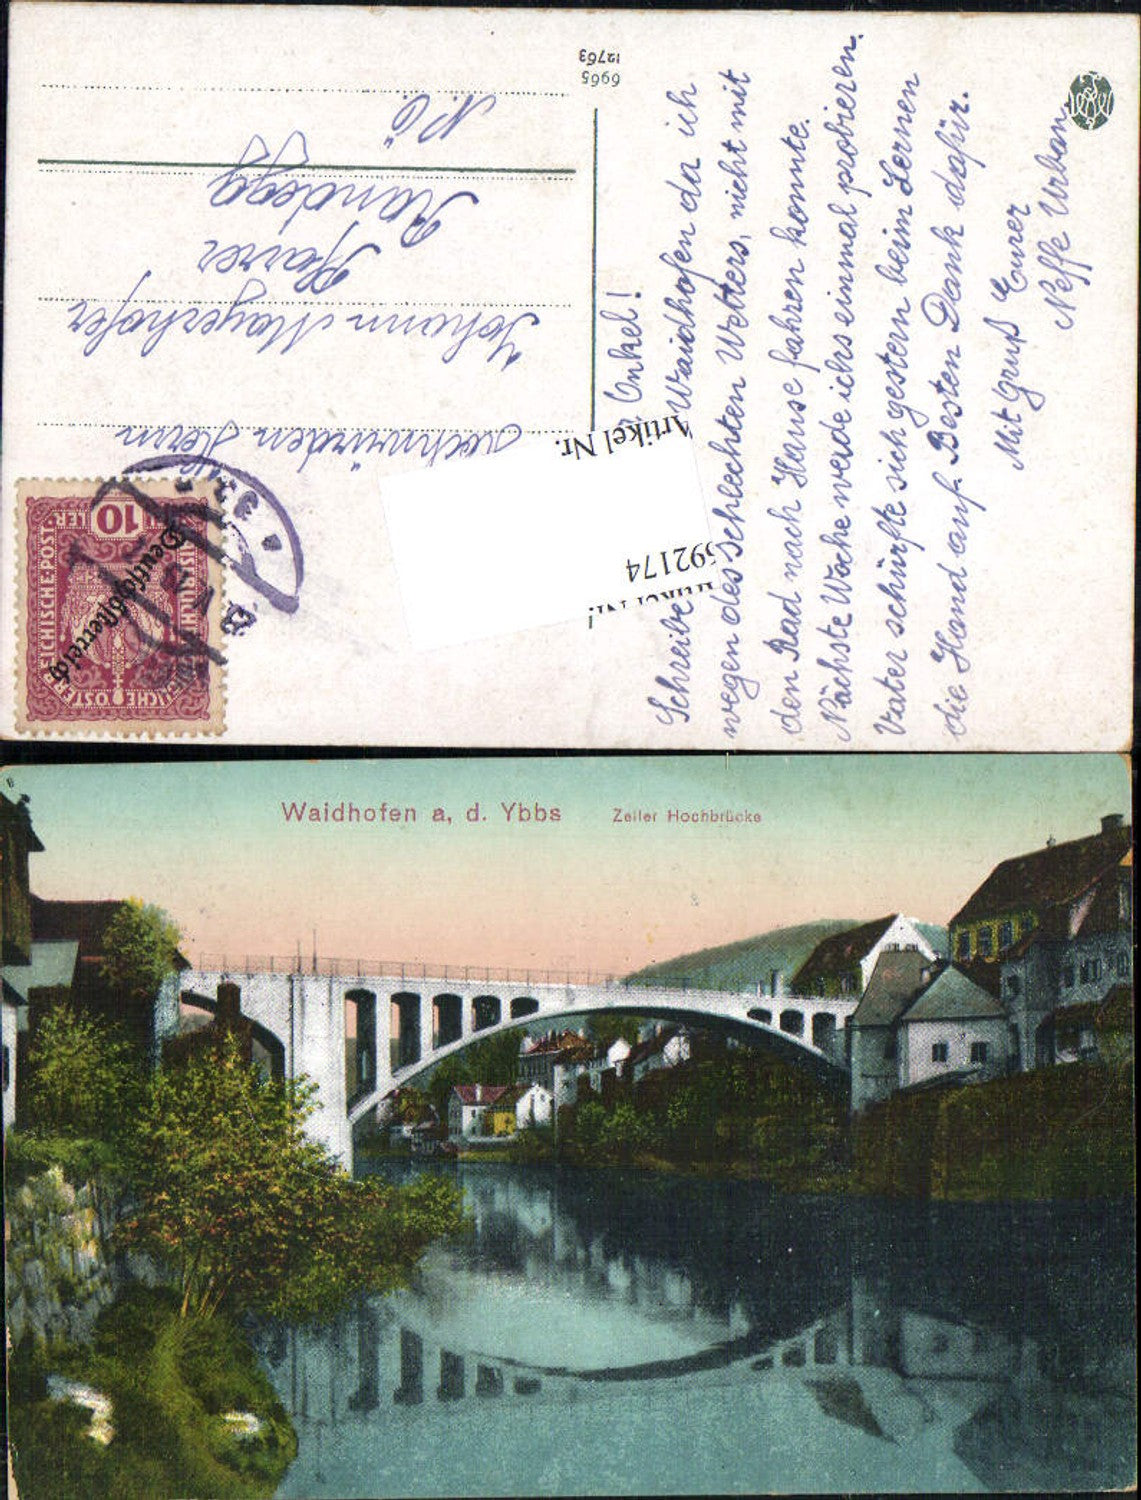 Onkel!
Schreibe Waidhofen da ich
wegen des schlechten Wetters, nicht mit
den Rad nach Hause fahren konnte.
Nächste Woche werde ichs einmal probieren.
Vater schürfte sich gestern beim Lernen
die Hand auf. Besten Dank dafür.
Mit Gruß Eurer
Neffe Urban
Hochwürden Herrn
Johann Mayerhofer
Pfarrer
Randegg
N. Ö.
6965
12763
Artikel Nr.
592174
Artikel Nr!
10
Deutschösterreich
Waidhofen a, d. Ybbs Zeller Hochbrücke